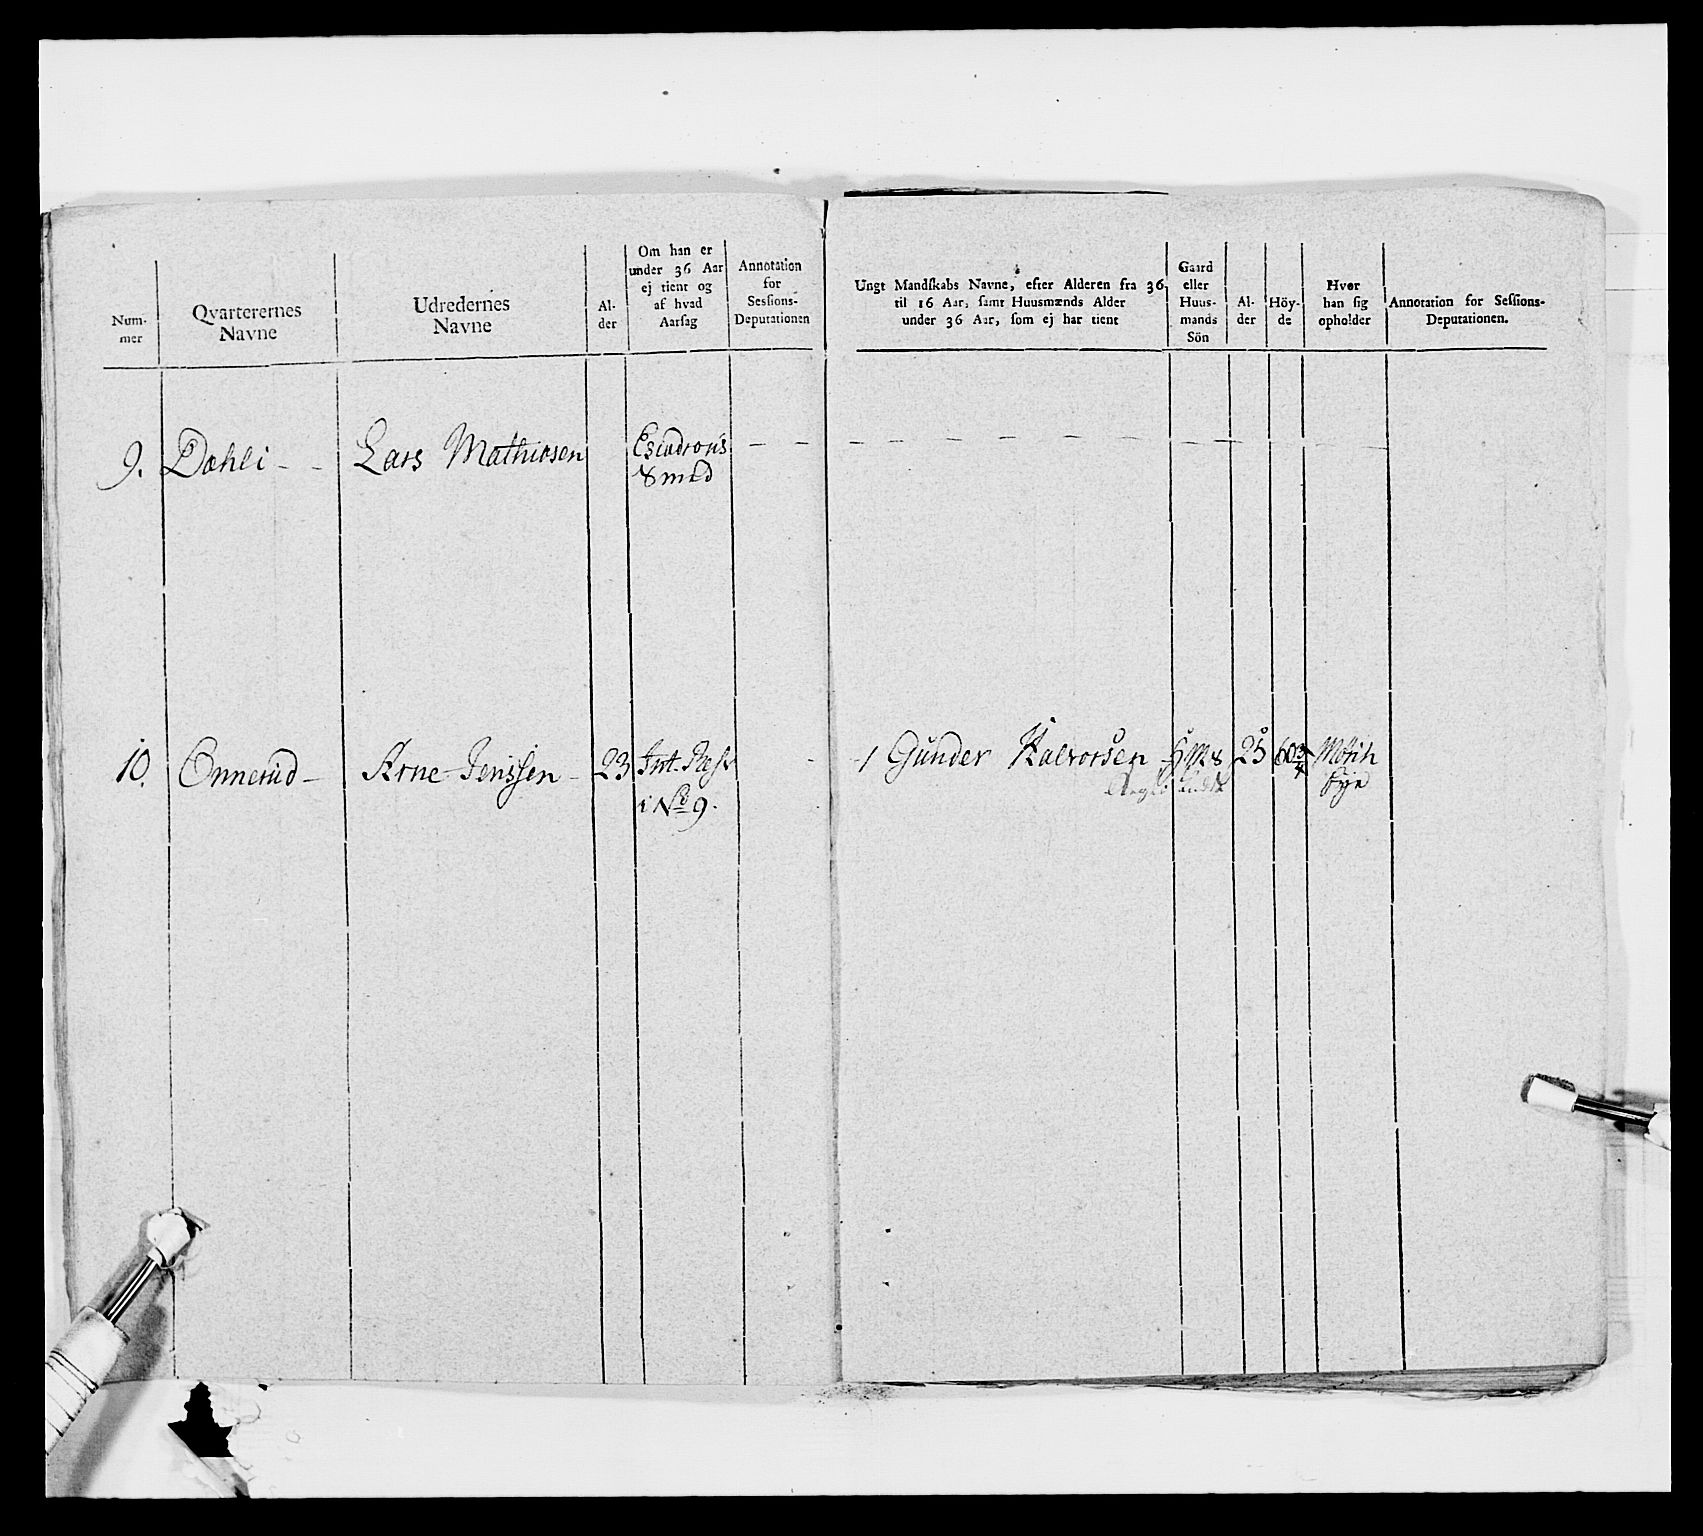 Num-
mer
Qvarterernes
Navne
Udredernes
Navne
Al-
der
Om han er
under 36 Aar
ej tient og
af hvad
Aarsag
Annotation
for
Sessions-
Deputationen
Ungt Mandskabs Navne, efter Alderen fra 36
til 16 Aar, samt Huusmænds Alder
under 36 Aar, som ej har tient
Gaard
eller
Huus-
mands
Sön
Al-
der
Höy-
de
Hvor
han sig
opholder
Annotation for Sessions-
Deputationen.
9. Dæhli - - Lars Mathiesen Escadrons - -
Smed
10. Onnerud - Arne Jenssen - 23 Int.
i No 9.
1 Gunder Halvorsen 25 60 3/4